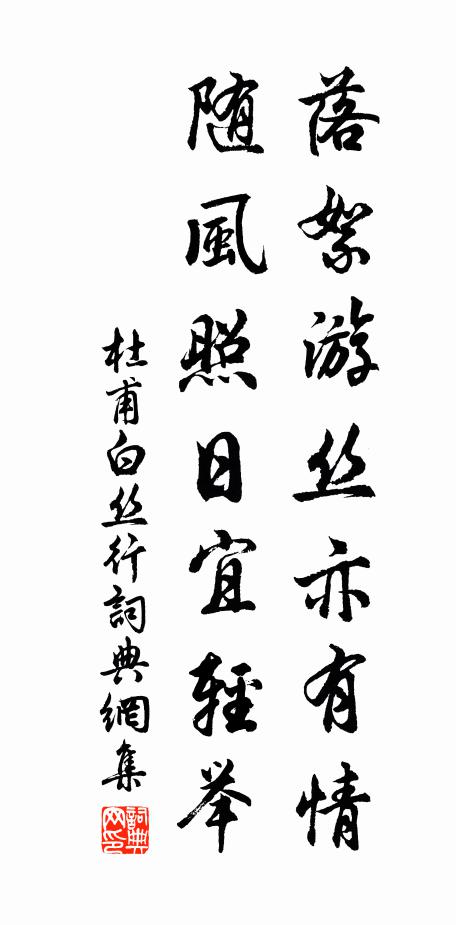 落絮游丝亦有情
随風照日宜輕举
杜甫白丝行詞典網集
詞典网印